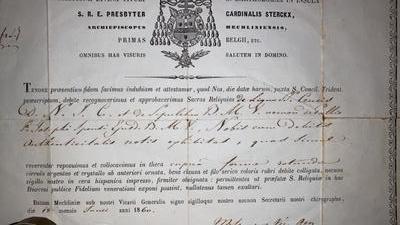 S. R. E. PRESBYTER CARDINALIS STERCKX,
ARCHIEPISCOPUS MECHLINIENSIS,
PRIMAS BELGII, ETC.
OMNIBUS HAS VISURIS SALUTEM IN DOMINO.
TENORE præsentium fidem facimus indubiam et attestamur, quod Nos, die datæ harum, juxta S. Concil. Trident.
præscriptum, debite recognoverimus et approbaverimus Sacras Reliquias de Ligno S. Crucis
D. N. J. C. et de Sepulchro B. M. V.
B. M. V. Nobis cum debitis
authenticitatis notis exhibitas, quas simul
reverenter reposuimus et collocavimus in theca cuprea formæ rotundæ
circulis argenteo et crystallo ab anteriori ornata, bene clausa et filo serico coloris rubri debite colligata, necnon
sigillo nostro in cera hispanica impresso, firmiter obsignata; permittentes ut præfatæ S. Reliquiæ in hac
Diœcesi publicæ Fidelium venerationi exponi possint, nullatenus tamen exaltari.
Datum Mechliniæ sub nostri Vicarii Generalis signo sigilloque nostro necnon Secretarii nostri chirographo,
die 18 mensis Junii anni 1860.